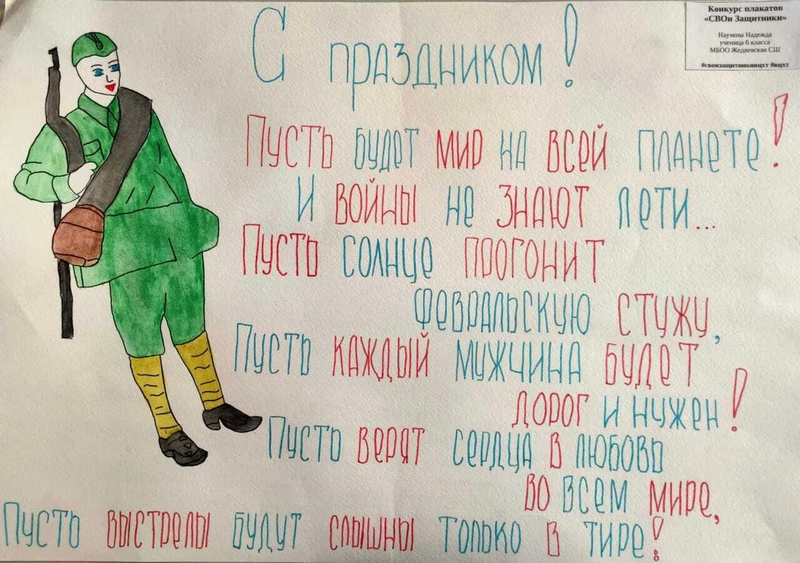 Конкурс плакатов
«СВОи Защитники»
Наумова Надежда
ученица 6 класса
МБОО Жедяевская СШ
#своизащитникивцхт #вцхт
С праздником!
Пусть будет мир на всей планете!
И войны не знают дети...
Пусть солнце прогонит
февральскую стужу,
Пусть каждый мужчина будет
дорог и нужен!
Пусть верят сердца в любовь
во всем мире,
Пусть выстрелы будут слышны только в тире!